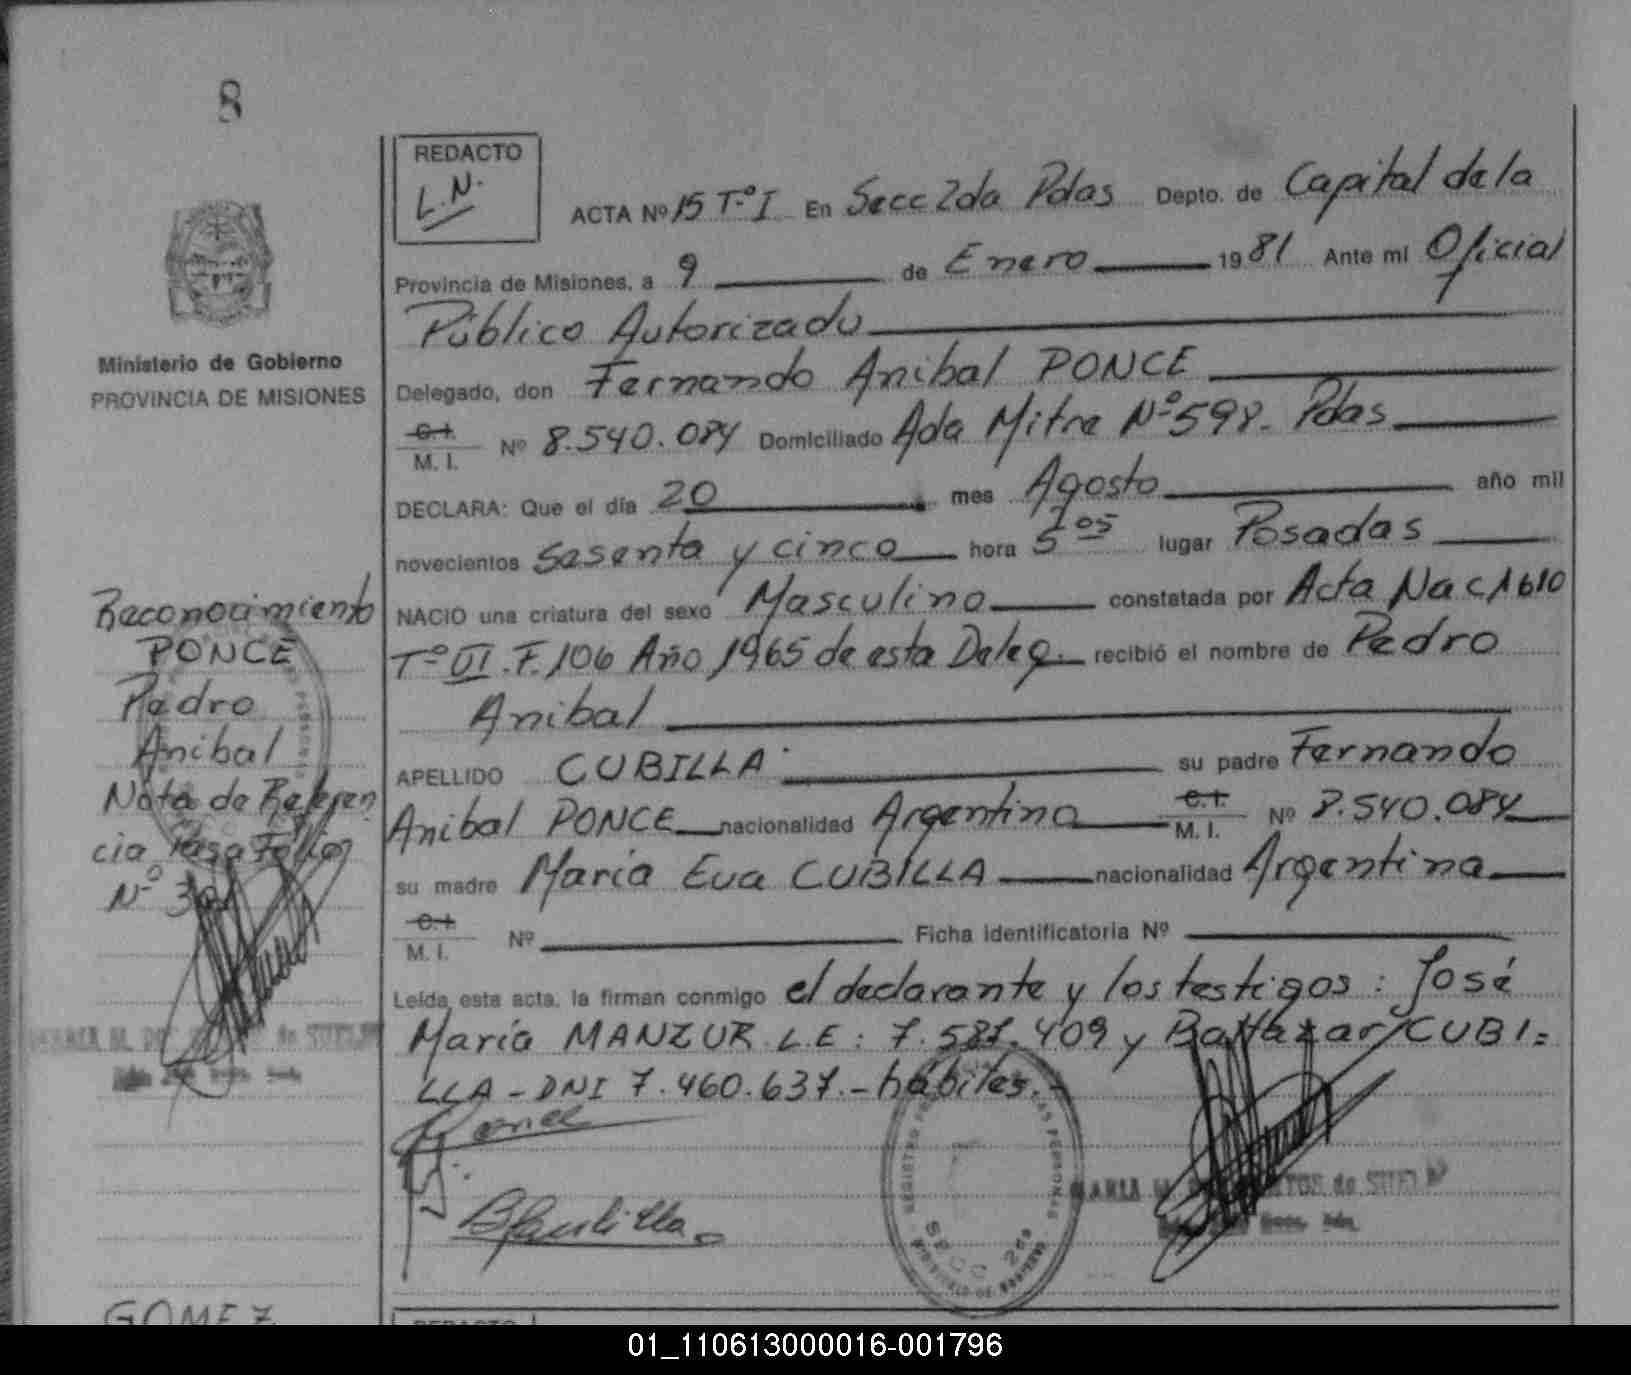 8
REDACTO
L.N.
ACTA Nº 15 Tº I En Secc 2da Pdas Depto. de Capital de la
Provincia de Misiones, a 9 de Enero 1981 Ante mi Oficial
Público Autorizado
Delegado, don Fernando Anibal PONCE
C.I.
M. I. Nº 8.540.084 Domiciliado Ada Mitre Nº 598- Pdas
DECLARA: Que el día 20 mes Agosto año mil
novecientos Sesenta y cinco hora 5 05 lugar Posadas
NACIO una criatura del sexo Masculino constatada por Acta Nac 1610
Tº III F. 106 Año 1965 de esta Deleg. recibió el nombre de Pedro
Anibal
APELLIDO CUBILLA su padre Fernando
Anibal PONCE nacionalidad Argentina C.I. M. I. Nº 8.540.084
su madre María Eva CUBILLA nacionalidad Argentina
C.I.
M. I. Nº Ficha identificatoria Nº
Leída esta acta, la firman conmigo el declarante y los testigos: José
María MANZUR L.E: 7.587.409 y Baltazar CUBI=
LLA - DNI 7.460.637.- hábiles.-
Ministerio de Gobierno
PROVINCIA DE MISIONES
Reconocimiento
PONCE
Pedro
Anibal
Nota de Referen
cia pasa Folio
Nº
BCubilla
SECC 2da
MARIA M. de SUELD
GOMEZ
REDACTO
01_110613000016-001796